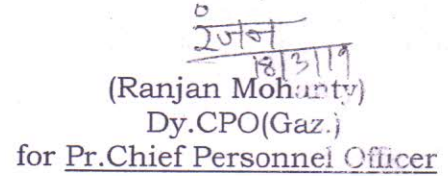 रंजन
18/3/19
(Ranjan Mohanty)
Dy.CPO(Gaz.)
for Pr.Chief Personnel Officer